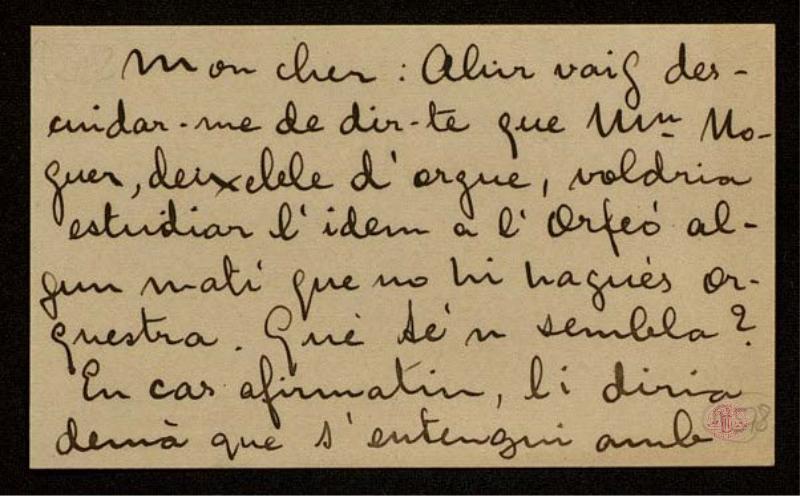 Mon cher: Ahir vaig des-
cuidar-me de dir-te que Mn. No-
guer, deixeble d'orgue, voldria
estudiar l'idem a l'Orfeó al-
gun matí que no hi hagués or-
questra. Què te'n sembla?
En cas afirmatiu, li diria
demà que s'entengui amb